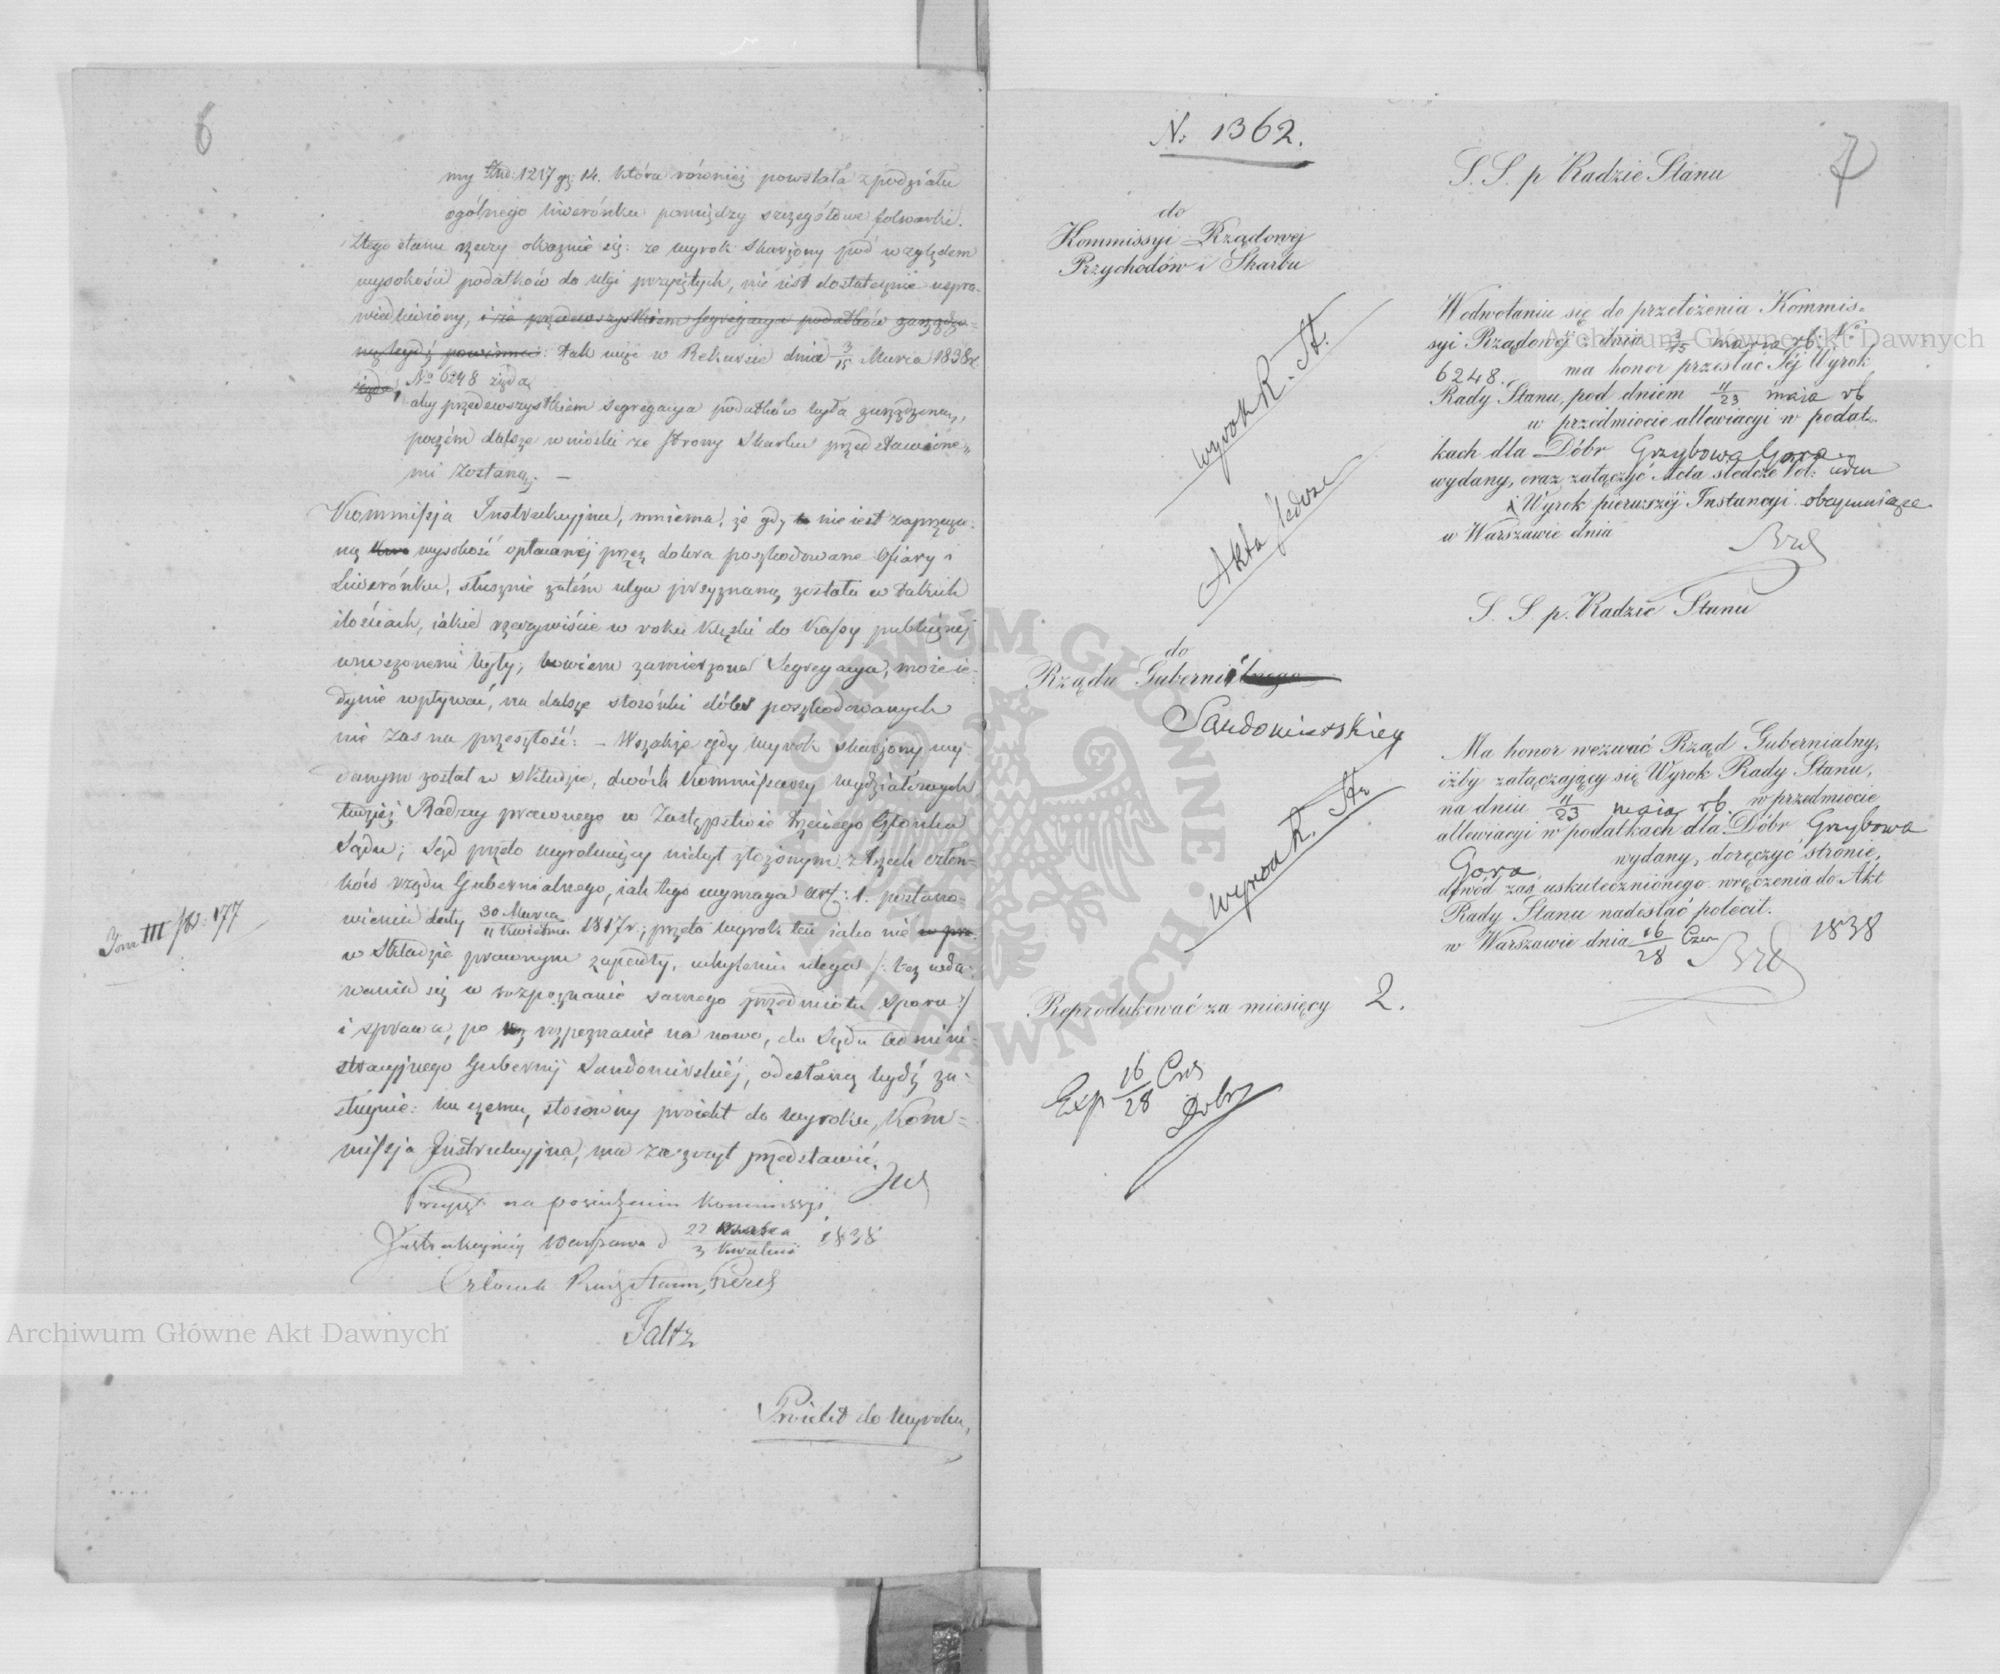 6
my złtd 1217 gr 14. która również powstała z podziału
ogólnego liwerónku pomiędzy szczegółowe folwarki.
Ztego stanu rzeczy okaznie się: że wyrok skarżony pod względem
wysokości podatków do ulgi przyjętych, nie iest dostatecznie uspra-
wiedliwiony, i że przedewszystkiem segregacya podatków zarządzo-
ną bydź powinna: tak więc w Rekursie dnia 3/15 Marca 1838 r.
żąda, No 6248 żąda,
aby przedewszystkiem segregacya podatków była zarządzoną,
poczém dalsze wnioski ze strony Skarbu przedstawione-
mi zostaną. —
Kommissja Instrukcyjna, mniema, że gdy nie iest zaprzeczo-
ną wysokość opłacanéj przez dobra poszkodowane Ofiary i
Liwerónku, słusznie zatém ulga przyznaną została w takich
ilościach, iakie rzeczywiście w roku klęski do Kassy publicznéj
wniezionemi były; bowiem zamierzona Segregacya, może ie-
dynie wpływać, na dalsze stosónki dóbr poszkodowanych
nie zas na przeszłość: – Wszakże gdy wyrok skarżony wy-
danym został w składzie, dwóch Kommissarzy wydziałowych
tudzież Radzcy prawnego w Zastępstwie trzeciego Członka
Sądu; Sąd przeto wyrokuiący niebył złożonym z trzech człon-
ków rządu Gubernialnego, iak tego wymaga art: 1. postano-
wienia daty 30 Marca/11 Kwietnia 1817 r; przeto wyrok ten iako nie w pra-
w Składzie prawnym zapadły, uchyleniu ulega /: bez wda-
wania się w rozpoznanie samego przedmiotu sporu :/
i sprawa, po rozpoznanie na nowo, do Sądu admini-
stracyjnego Gubernij Sandomirskiéj, odesłaną bydź za-
sługuie: ku czemu, stosowny proiekt do wyroku, Kom-
missja Instrukcyjna, ma zaszczyt przedstawić.
Tom III str: 177
Przyięto na posiedzeniu Kommissyi
Instrukcyjnéj Warszawa d 22 Marca/3 Kwietnia 1838
Członek Rady Stanu, Prezes
Faltz
Proiekt do wyroku,
7
N. 1362.
S. S. p Radzie Stanu
do
Kommissyi Rządowej
Przychodów i Skarbu
Wodwołaniu się do przełożenia Kommis-
syi Rządowej z dnia 3/15 marca rb. No
6248. ma honor przesłać Jéj Wyrok
Rady Stanu, pod dniem 11/23 maia rb
w przedmiocie allewiacyi w podat-
kach dla Dóbr Grzybowa Gora
wydany, oraz załączyć Acta śledcze Vol: uden
i Wyrok pierwszéj Instancyi obeymuiące
w Warszawie dnia
wyrok R. St.
Akta śledcze
S. S p. Radzie Stanu
do
Rządu Gubernialnego
Sandomirskiey
Ma honor wezwać Rząd Gubernialny,
iżby załączający się Wyrok Rady Stanu,
na dniu 11/23 maia rb. w przedmiocie
allewiacyi w podatkach dla Dóbr Grzybowa
Gora wydany, doręczyć stronie,
dowód zaś uskutecznionego wręczenia do Akt
Rady Stanu nadesłać polecił.
w Warszawie dnia 16/28 Czer 1838
wyrok R. St
Reprodukować za miesięcy 2.
Exp 16/28 Cze
Archiwum Główne Akt Dawnych
Archiwum Główne Akt Dawnych
ARCHIWUM GŁÓWNE AKT DAWNYCH